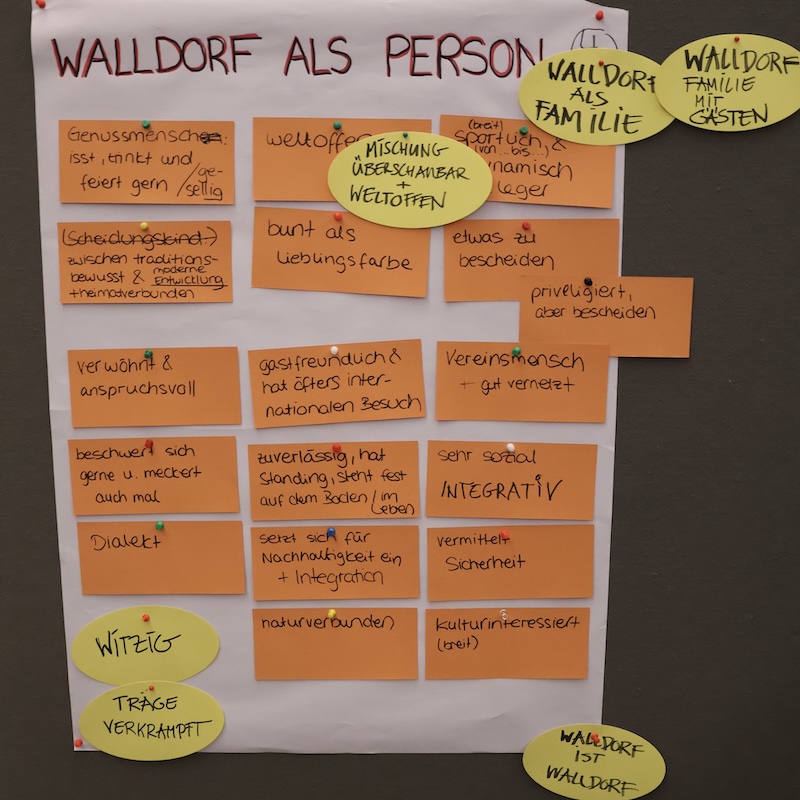 WALLDORF ALS PERSON
WALLDORF
ALS
FAMILIE
WALLDORF
FAMILIE
MIT
GÄSTEN
Genussmensch:
isst, trinkt und
feiert gern / ge-
sellig
weltoffen
MISCHUNG
ÜBERSCHAUBAR
+
WELTOFFEN
(breit)
sportlich, &
(von.. bis...)
dynamisch
leger
(Scheidungskind.)
zwischen traditions-
bewusst & moderne
Entwicklung
+heimatverbunden
bunt als
Lieblingsfarbe
etwas zu
bescheiden
priveligiert,
aber bescheiden
verwöhnt &
anspruchsvoll
gastfreundlich &
hat öfters inter-
nationalen Besuch
Vereinsmensch
+ gut vernetzt
beschwert sich
gerne u. meckert
auch mal
zuverlässig, hat
Standing, steht fest
auf dem Boden / im
Leben
sehr sozial
INTEGRATIV
Dialekt
setzt sich für
Nachhaltigkeit ein
+ Integration
vermittelt
Sicherheit
naturverbunden
kulturinteressiert
(breit)
WITZIG
TRÄGE
VERKRAMPFT
WALLDORF
IST
WALLDORF